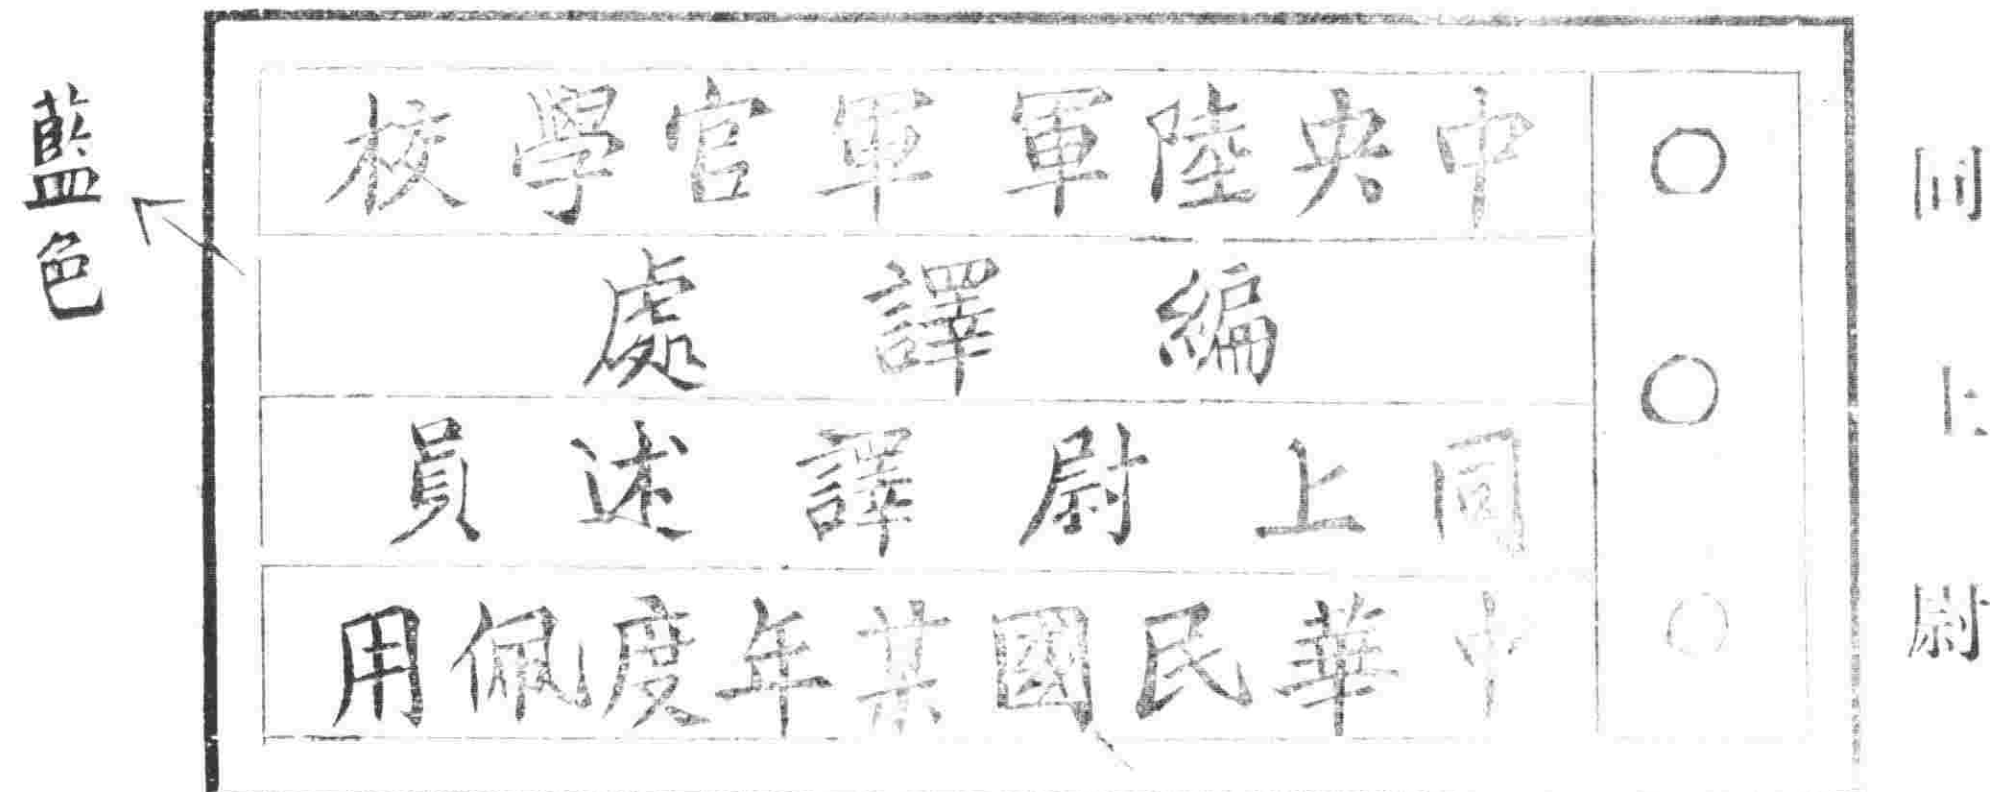 同上尉
中央陸軍軍官學校
編譯處
同上尉譯述員
中華民國某年度佩用
藍色